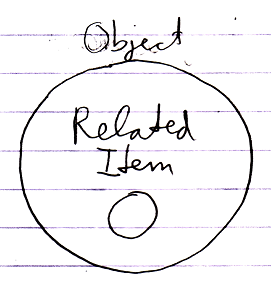 Object
Related
Item